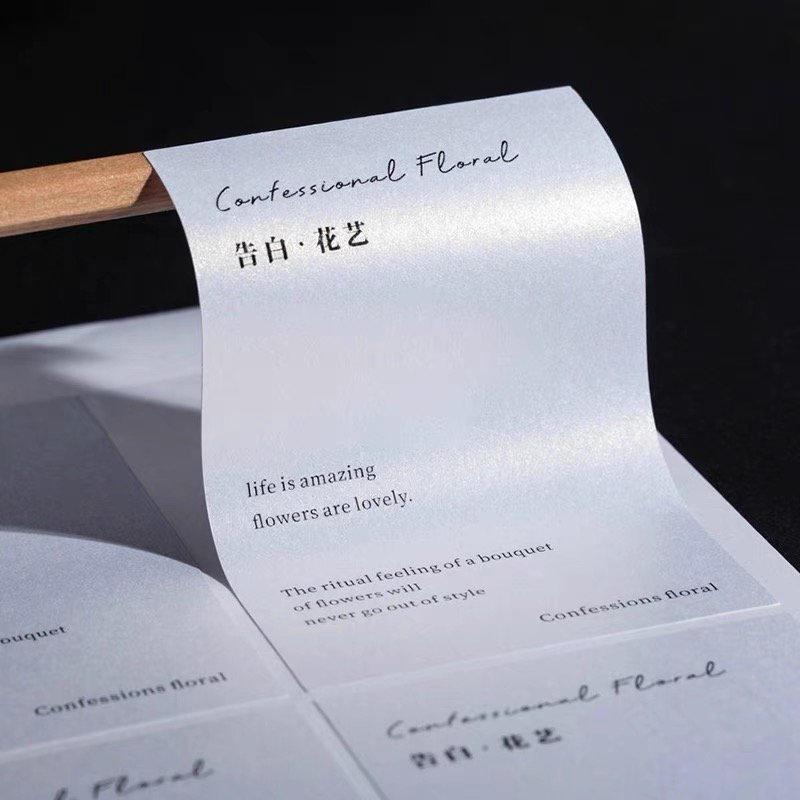 Confessional Floral
告白·花艺
life is amazing
flowers are lovely.
The ritual feeling of a bouquet
of flowers will
never go out of style
Confessions floral
ouquet
Confessions floral
Confessional Floral
告白·花艺
Floral